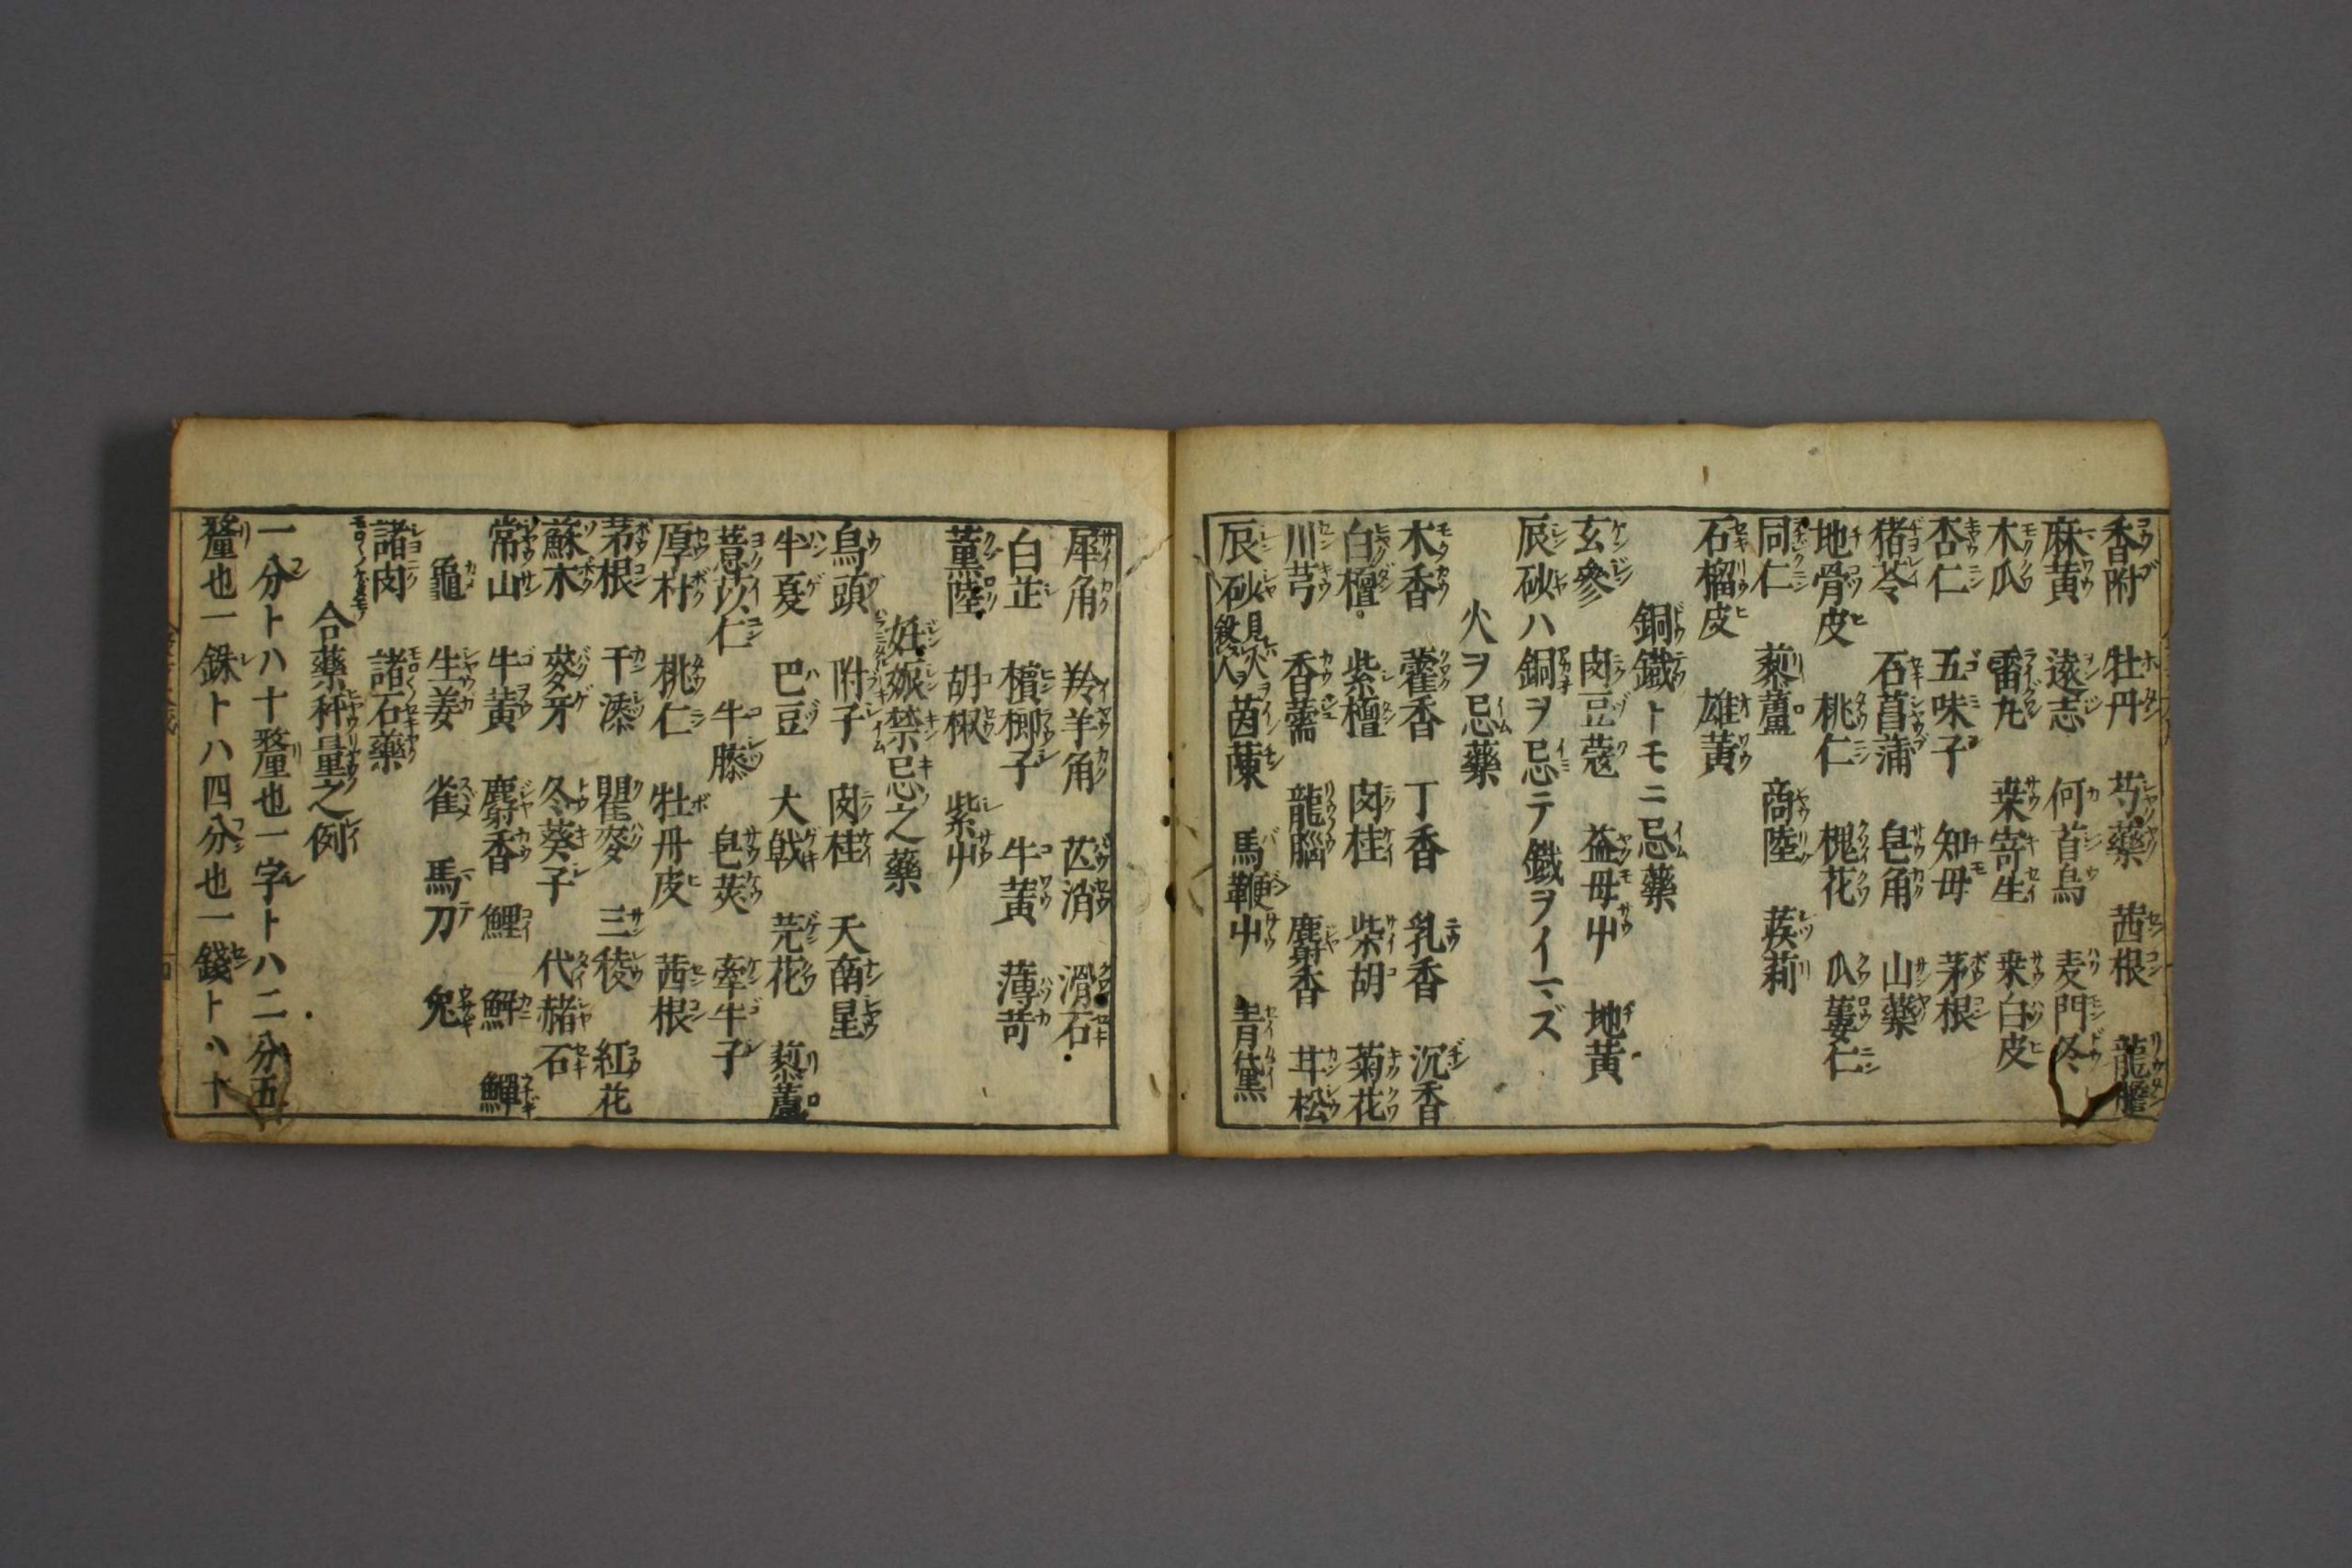 香附 牡丹 芍藥 茜根 龍膽
麻黄 遠志 何首烏 麦門冬
木瓜 雷丸 桒寄生 桒白皮
杏仁 五味子 知母 茅根
猪苓 石菖蒲 皂角 山藥
地骨皮 桃仁 槐花 瓜蔞仁
同仁 藜蘆 商陸 蒺莉
石榴皮 雄黄
銅鐵トモニ忌藥
玄參 肉豆蔻 益母屮 地黄
辰砂ハ銅ヲ忌テ鐵ヲイマズ
火ヲ忌藥
木香 藿香 丁香 乳香 沉香
白檀 紫檀 肉桂 柴胡 菊花
川芎 香薷 龍腦 麝香 甘松
辰砂 見火殺人 茵蔯 馬鞭屮 青黛
犀角 羚羊角 芒消 滑石
白芷 檳榔子 牛黄 薄苛
薫陸 胡椒 紫屮
妊娠禁忌之藥
烏頭 附子 肉桂 天南星
半夏 巴豆 大戟 芫花 藜蘆
薏苡仁 牛膝 皂莢 牽牛子
厚朴 桃仁 牡丹皮 茜根
茅根 干漆 瞿麥 三稜 紅花
蘇木 麥牙 冬葵子 代赭石
常山 牛黄 麝香 鯉 鮮 鱓
龜 生姜 雀 馬刀 兔
諸肉 諸石藥
合藥秤量之例
一分トハ十釐也一字トハ二分五
釐也一銖トハ四分也一錢トハ十